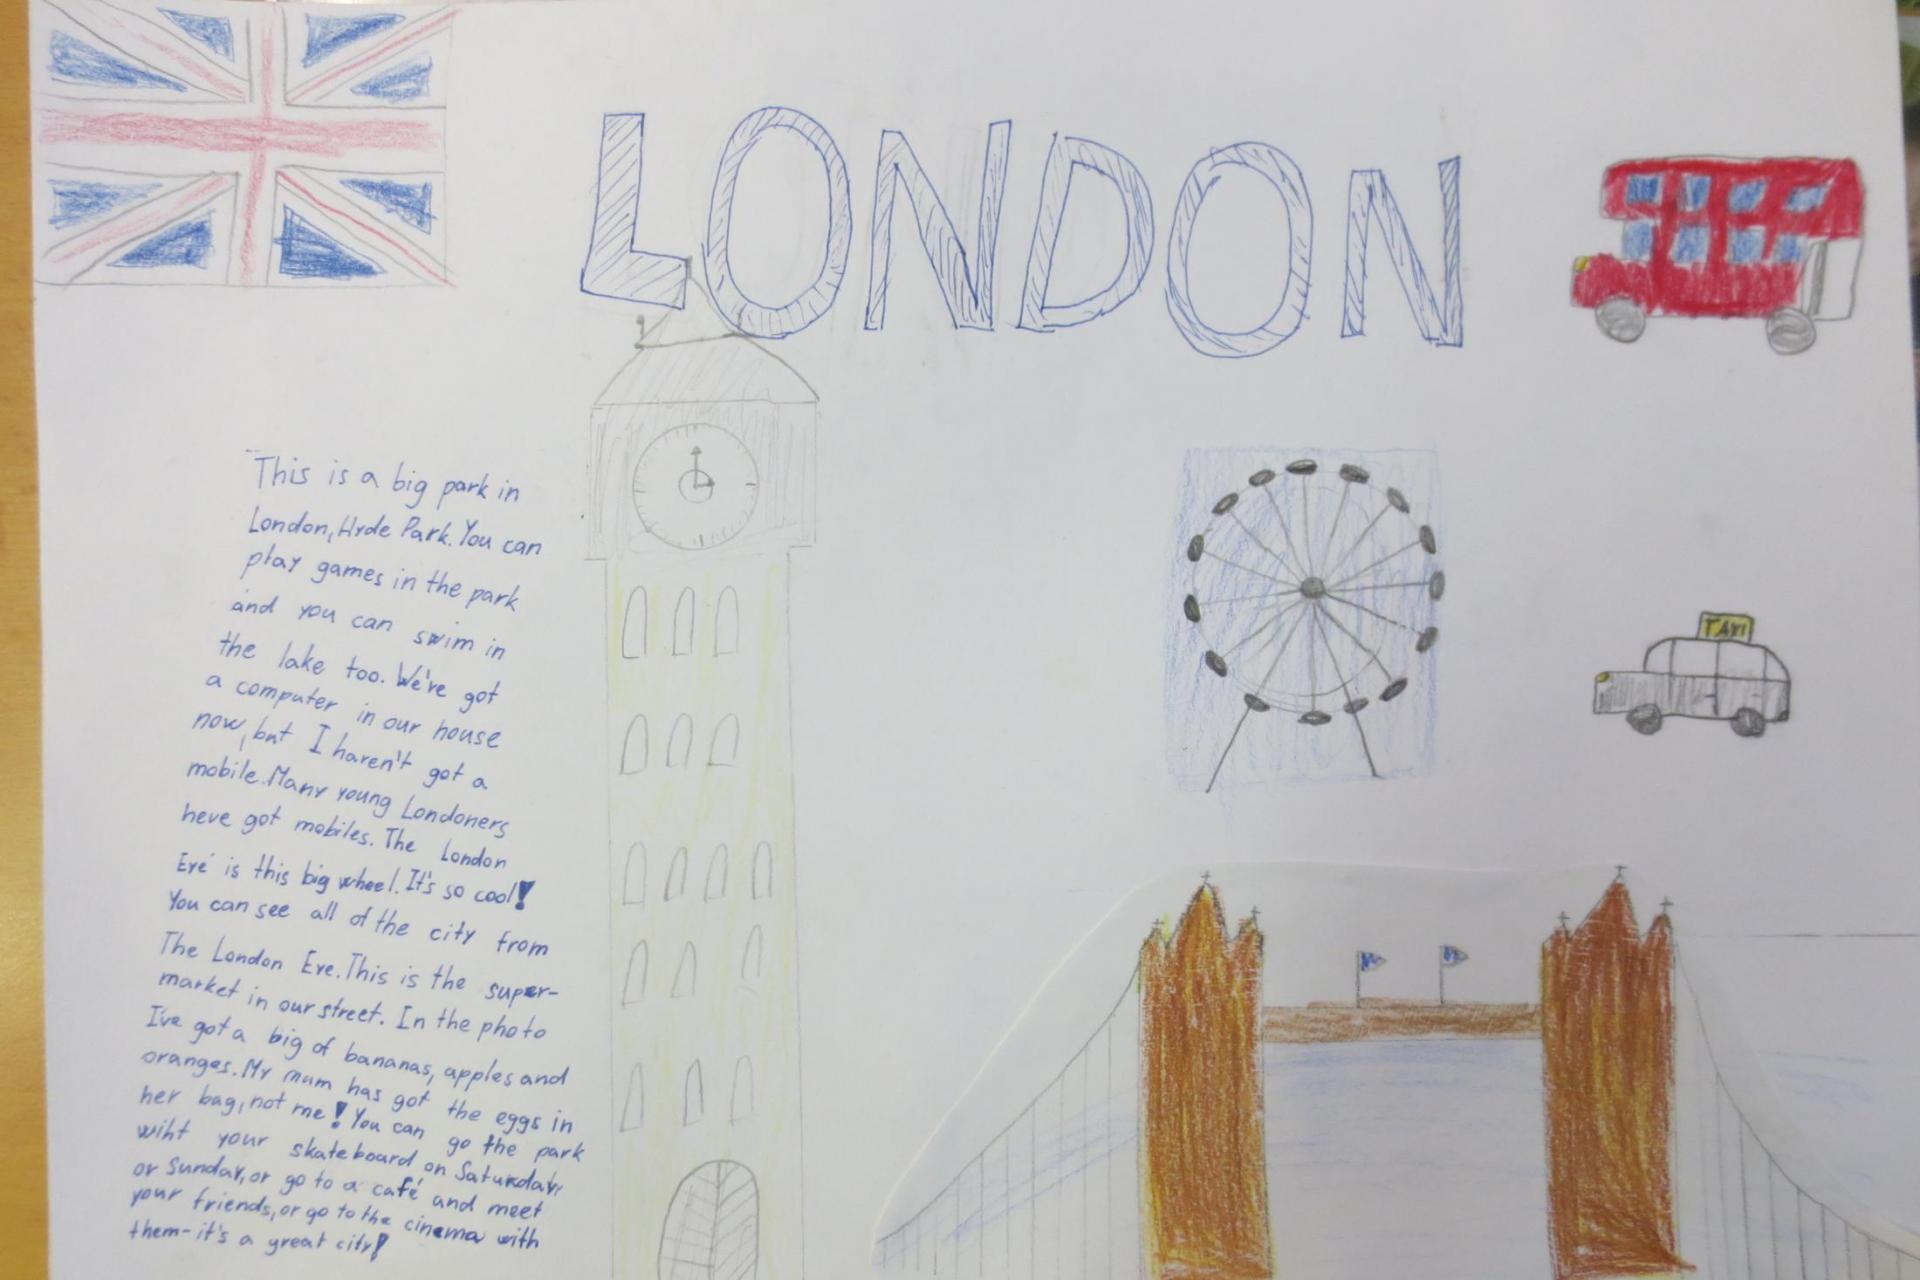 LONDON
This is a big park in
London, Hyde Park. You can
play games in the park
and you can swim in
the lake too. We've got
a computer in our house
now, but I haven't got a
mobile. Many young Londoners
heve got mobiles. The London
Eye' is this big wheel. It's so cool!
You can see all of the city from
The London Eye. This is the super-
market in our street. In the photo
I've got a big of bananas, apples and
oranges. My mum has got the eggs in
her bag, not me! You can go the park
wiht your skateboard on Saturday,
or Sunday, or go to a café and meet
your friends, or go to the cinema with
them - it's a great city!
TAXI